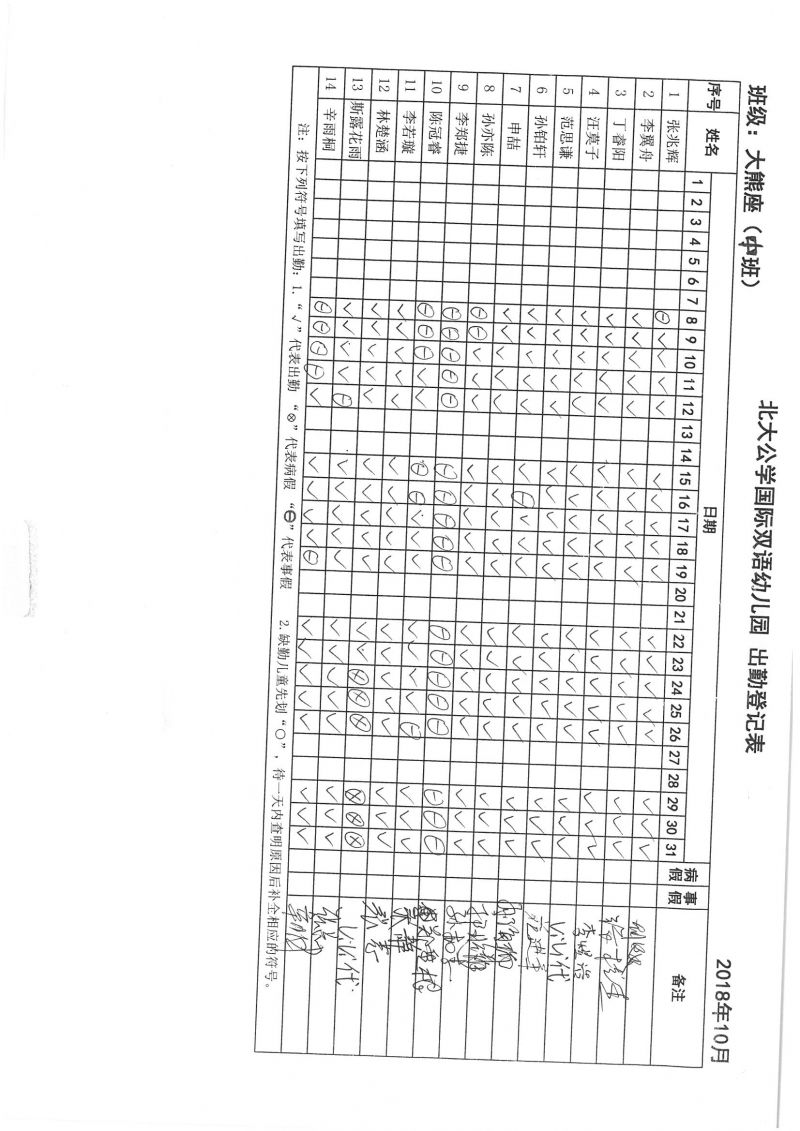 北大公学国际双语幼儿园 出勤登记表
班级：大熊座（中班）
2018年10月
序号 姓名 日期 病假 事假 备注
1 2 3 4 5 6 7 8 9 10 11 12 13 14 15 16 17 18 19 20 21 22 23 24 25 26 27 28 29 30 31
1 张兆辉 ⊖ √ √ √ √ √ √ √ √ √ √ √ √ √ √ √ √ √
2 李翼舟 √ √ √ √ √ √ √ √ √ √ √ √ √ √ √ √ √ √
3 丁睿阳 √ √ √ √ √ √ √ √ √ √ √ √ √ √ √ √ √ √
4 汪莫子 √ √ √ √ √ √ √ √ √ √ √ √ √ √ √ √ √ √
5 范思谦 √ √ √ √ √ √ √ √ √ √ √ √ √ √ √ √ √ √
6 孙铂轩 √ √ √ √ √ √ √ √ √ √ √ √ √ √ √ √ √ √
7 申喆 √ √ √ √ √ √ ⊖ √ √ √ √ √ √ √ √ √ √ √
8 孙亦陈 ⊖ ⊖ √ √ √ √ √ √ √ √ √ √ √ √ √ √ √ √
9 李郑捷 ⊖ ⊖ ⊖ ⊖ ⊖ √ √ √ √ √ √ √ √ √ √ √ √ √
10 陈冠睿 ⊖ ⊖ ⊖ √ √ ⊖ ⊖ ⊖ ⊖ ⊖ ⊖ ⊖ ⊖ ⊖ ⊖ ⊖ ⊖ ⊖
11 李若璇 √ √ √ √ √ ⊖ ⊖ √ √ √ √ √ √ √ ⊖ √ √ √
12 林楚涵 √ √ √ √ √ √ √ √ √ √ √ √ √ √ √ √ √ √
13 斯露花雨 √ √ √ √ ⊖ √ √ √ √ √ √ √ ⊗ ⊗ ⊗ ⊗ ⊗ ⊗
14 辛雨桐 ⊖ ⊖ ⊖ ⊖ √ √ √ √ √ ⊖ √ √ √ √ √ √ √ √
注：按下列符号填写出勤：1.“√”代表出勤“⊗”代表病假 “⊖”代表事假 2.缺勤儿童先划“○”，待一天内查明原因后补全相应的符号。